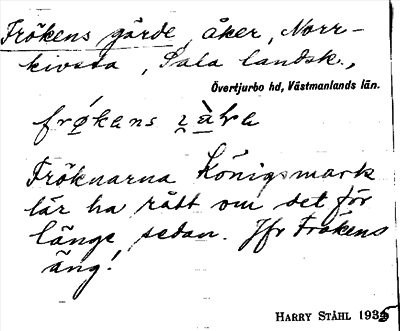 Frökens gärde, åker, Norr-
kivsta, Sala landsk.,
Övertjurbo hd, Västmanlands län.
frøkens
Fröknarna Königsmark
lär ha rått om det för
länge sedan. Jfr Frökens
äng!
HARRY STÅHL 1935